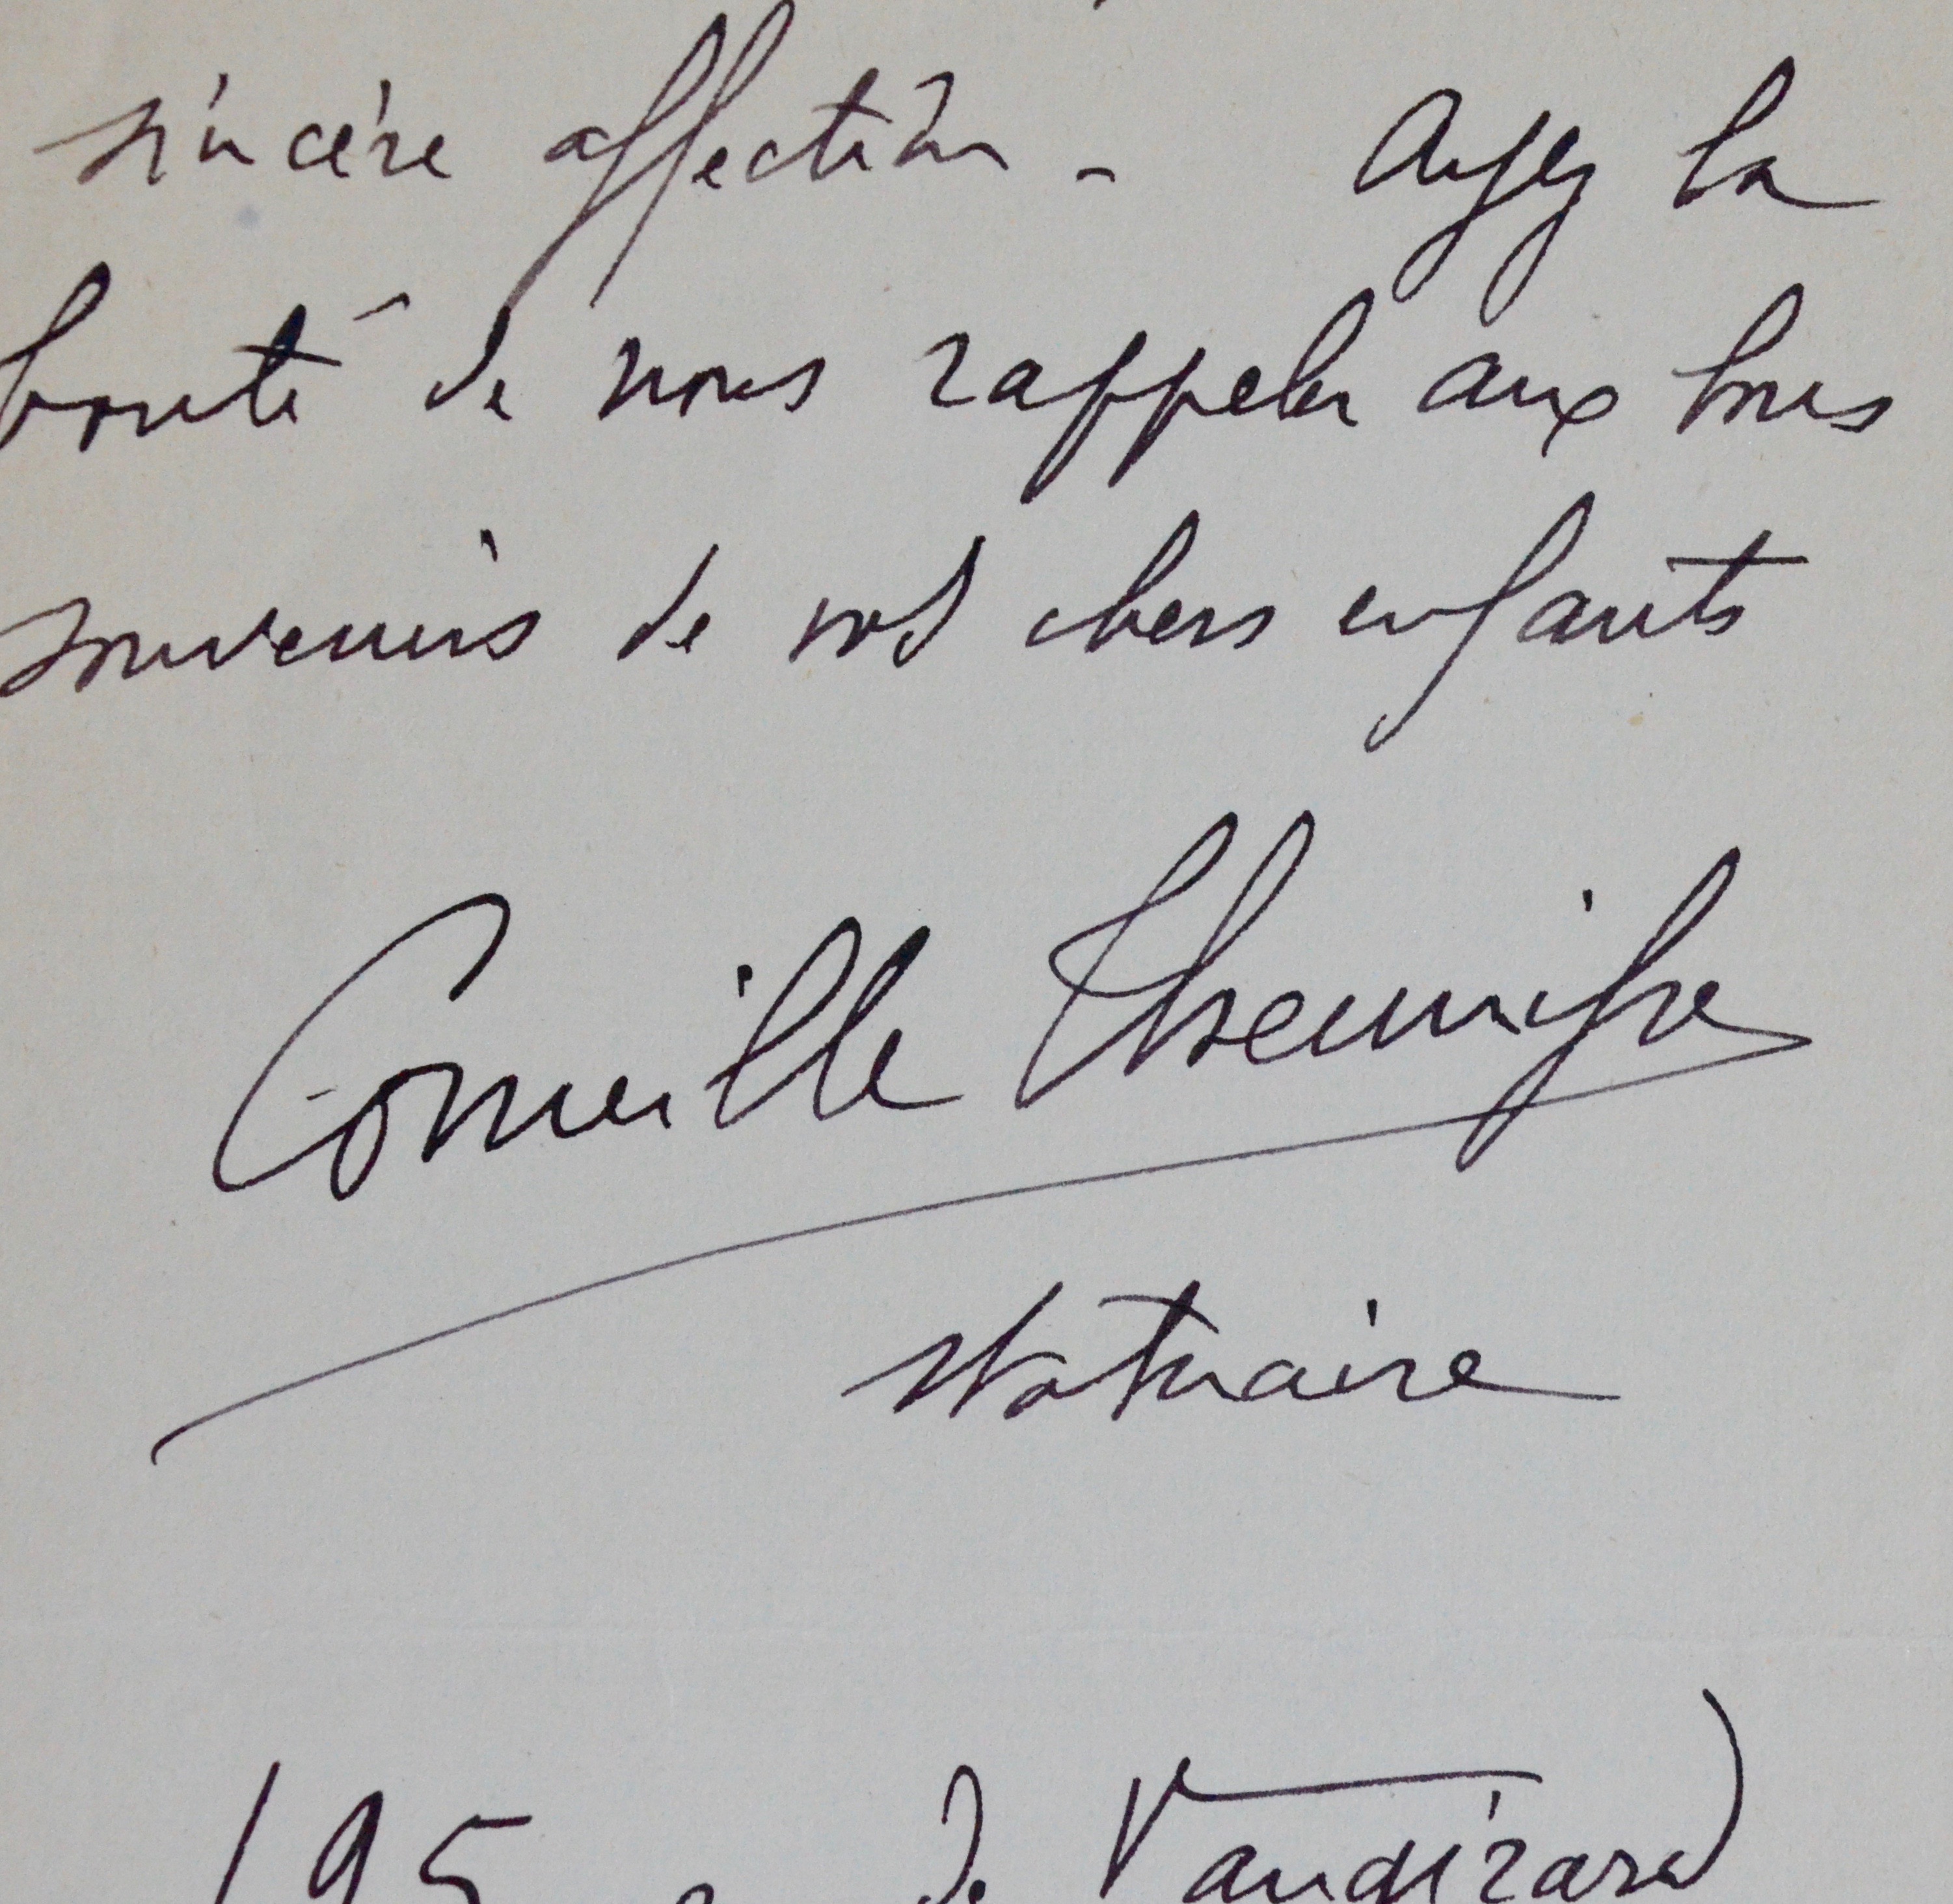 sincère affection - Ayez la
bonté de nous rappeler aux bons
souvenirs de vos chers enfants
Corneille Theunissen
Statuaire
195 r de Vaugirard